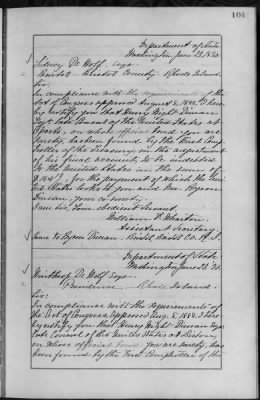 101
Department of State
Washington June 23, 1890.
De Wolf Esqre.
Bristol Bristol County. Rhode Island.
Sir:
In compliance with the requirements of the
Act of Congress approved August 8, 1888. I here
by notify you that Henry Wight Diman
Esq. late Consul of the United States at
on whose official bond you are
surety, has been found by the First Comp
troller of the Treasury, on the adjustment
of his final accounts, to be indebted
to the United States in the sum of
for the payment of which the Uni
ted States looks to you and Mr. Byron
Diman, your co-surety.
I am Sir, Your obedient Servant
William F. Wharton
Assistant Secretary
Same to Byron Diman. Bristol, Bristol Co. R.I.
Department of State
Washington June 23, 90.
Winthrop De Wolf Esqre
Providence Rhode Island.
Sir:
In compliance with the requirements of
the Act of Congress, Approved Aug. 8, 1888. I here
by notify you that Henry Wight Diman Esq.
late Consul of the United States at Lisbon
on whose official bond you are surety, has
been found by the First Comptroller of the